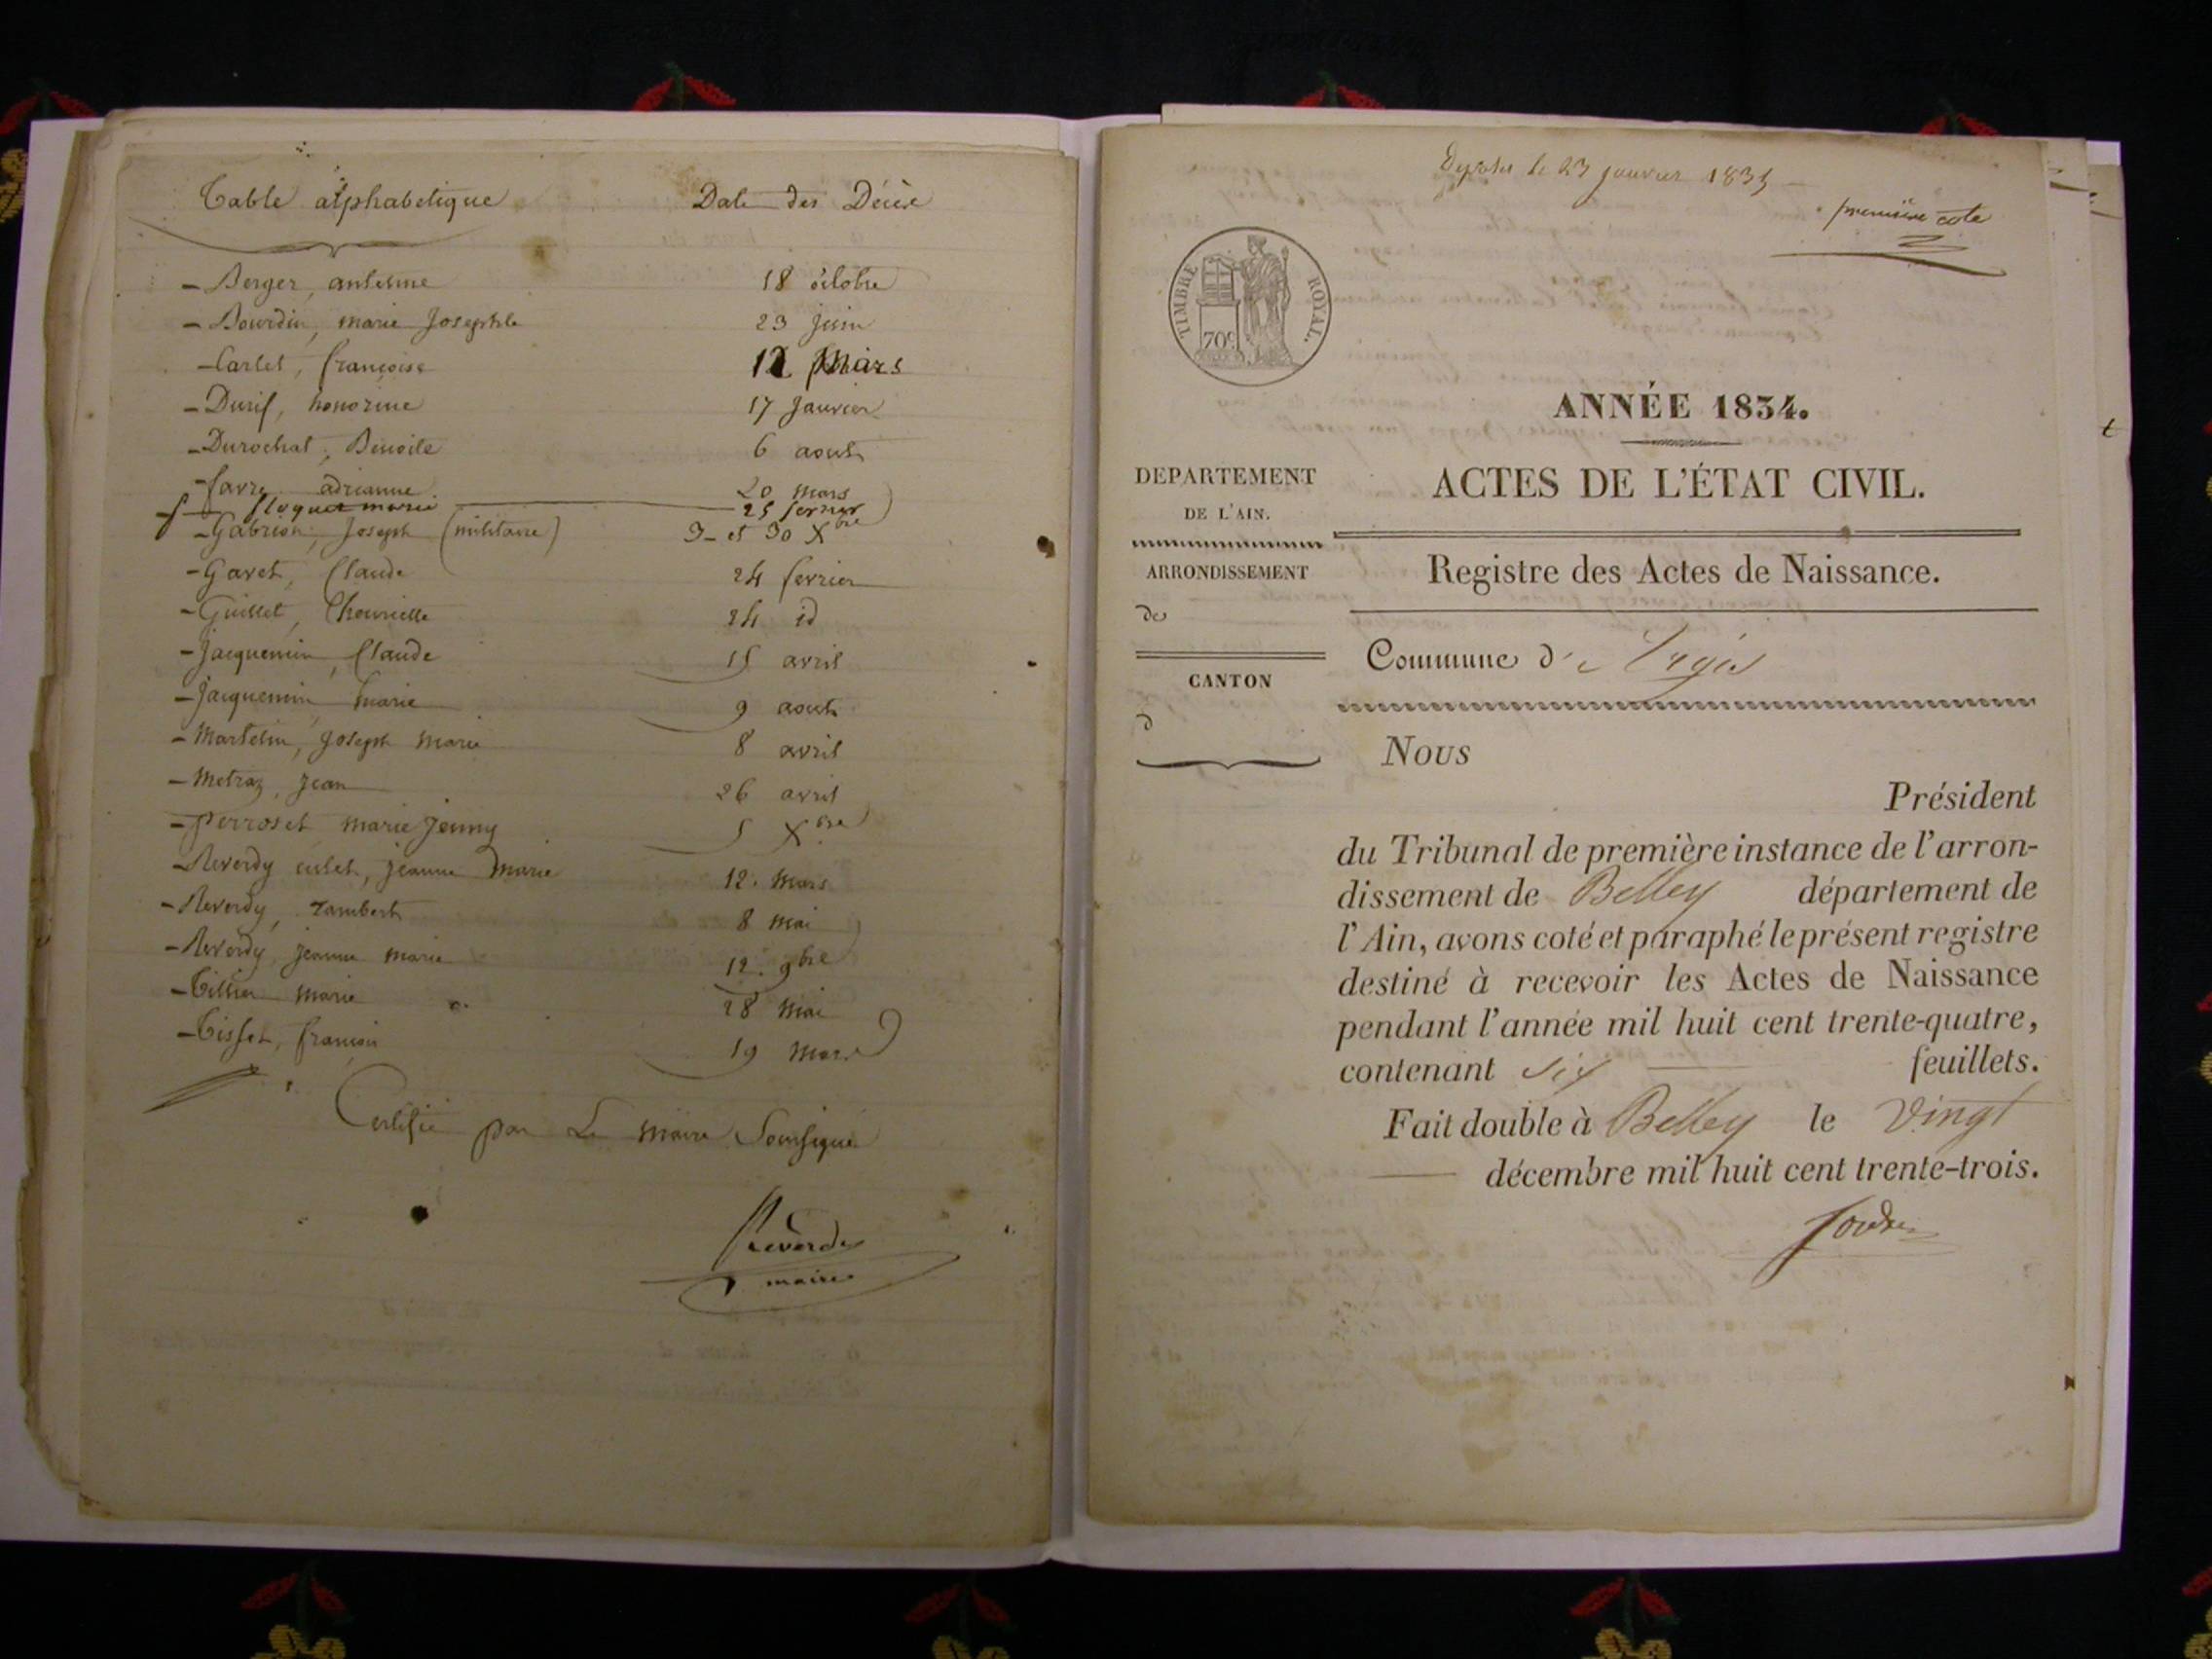 Table alphabetique Date des Décès
- Berger, antelme 18 octobre
- Bourdin, marie Josephte 23 juin
- Carlet, françoise 12 Mars
- Durif, honorine 17 Janvier
- Durochat, Benoite 6 aout
- favre adrianne 20 mars
floquet marie 25 fevrier
- Gabrion, Joseph (militaire) 3 et 30 Xbre
- Gavet, Claude 24 fevrier
- Guillet, 24 id
- Jacquemin, Claude 15 avril
- Jacquemin marie 9 aout
- Martelin, Joseph Marie 8 avril
- Metraz, Jean 26 avril
- Perroset marie Jenny 5 Xbre
- Reverdy culet, jeanne Marie 12. Mars
- Reverdy, rambert 8 mai
- Reverdy, jeanne marie 12. 9bre
- Tillier marie 28 mai
- Tisset, françois 19 mars
Certifié par Le maire Soussigné
Reverdy
maire
le 23 janvier 1835
première cote
TIMBRE ROYAL.
70c
ANNÉE 1834.
DEPARTEMENT
DE L'AIN.
ACTES DE L'ÉTAT CIVIL.
ARRONDISSEMENT
de
Registre des Actes de Naissance.
CANTON
d
Commune d' Argis
Nous
Président
du Tribunal de première instance de l'arron-
dissement de Belley département de
l'Ain, avons coté et paraphé le présent registre
destiné à recevoir les Actes de Naissance
pendant l'année mil huit cent trente-quatre,
contenant six feuillets.
Fait double à Belley le Vingt
décembre mil huit cent trente-trois.